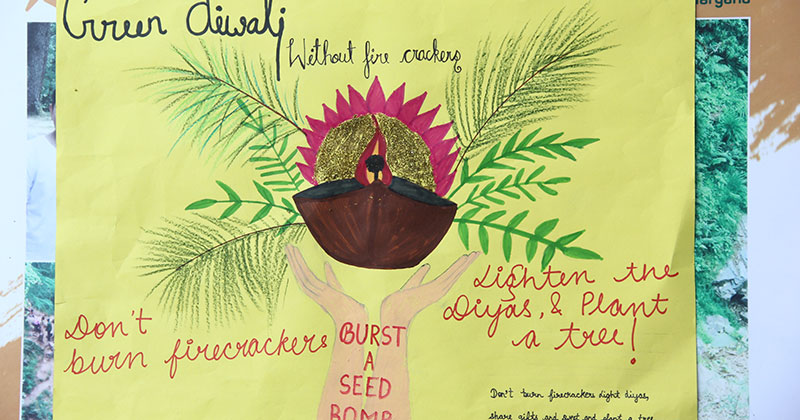 Green diwali
Without fire crackers
Lighten the
Diyas, & Plant
a tree!
Don't
burn firecrackers
BURST
A
SEED
BOMB
Don't burn firecrackers light diyas,
share gifts and sweet and plant a tree